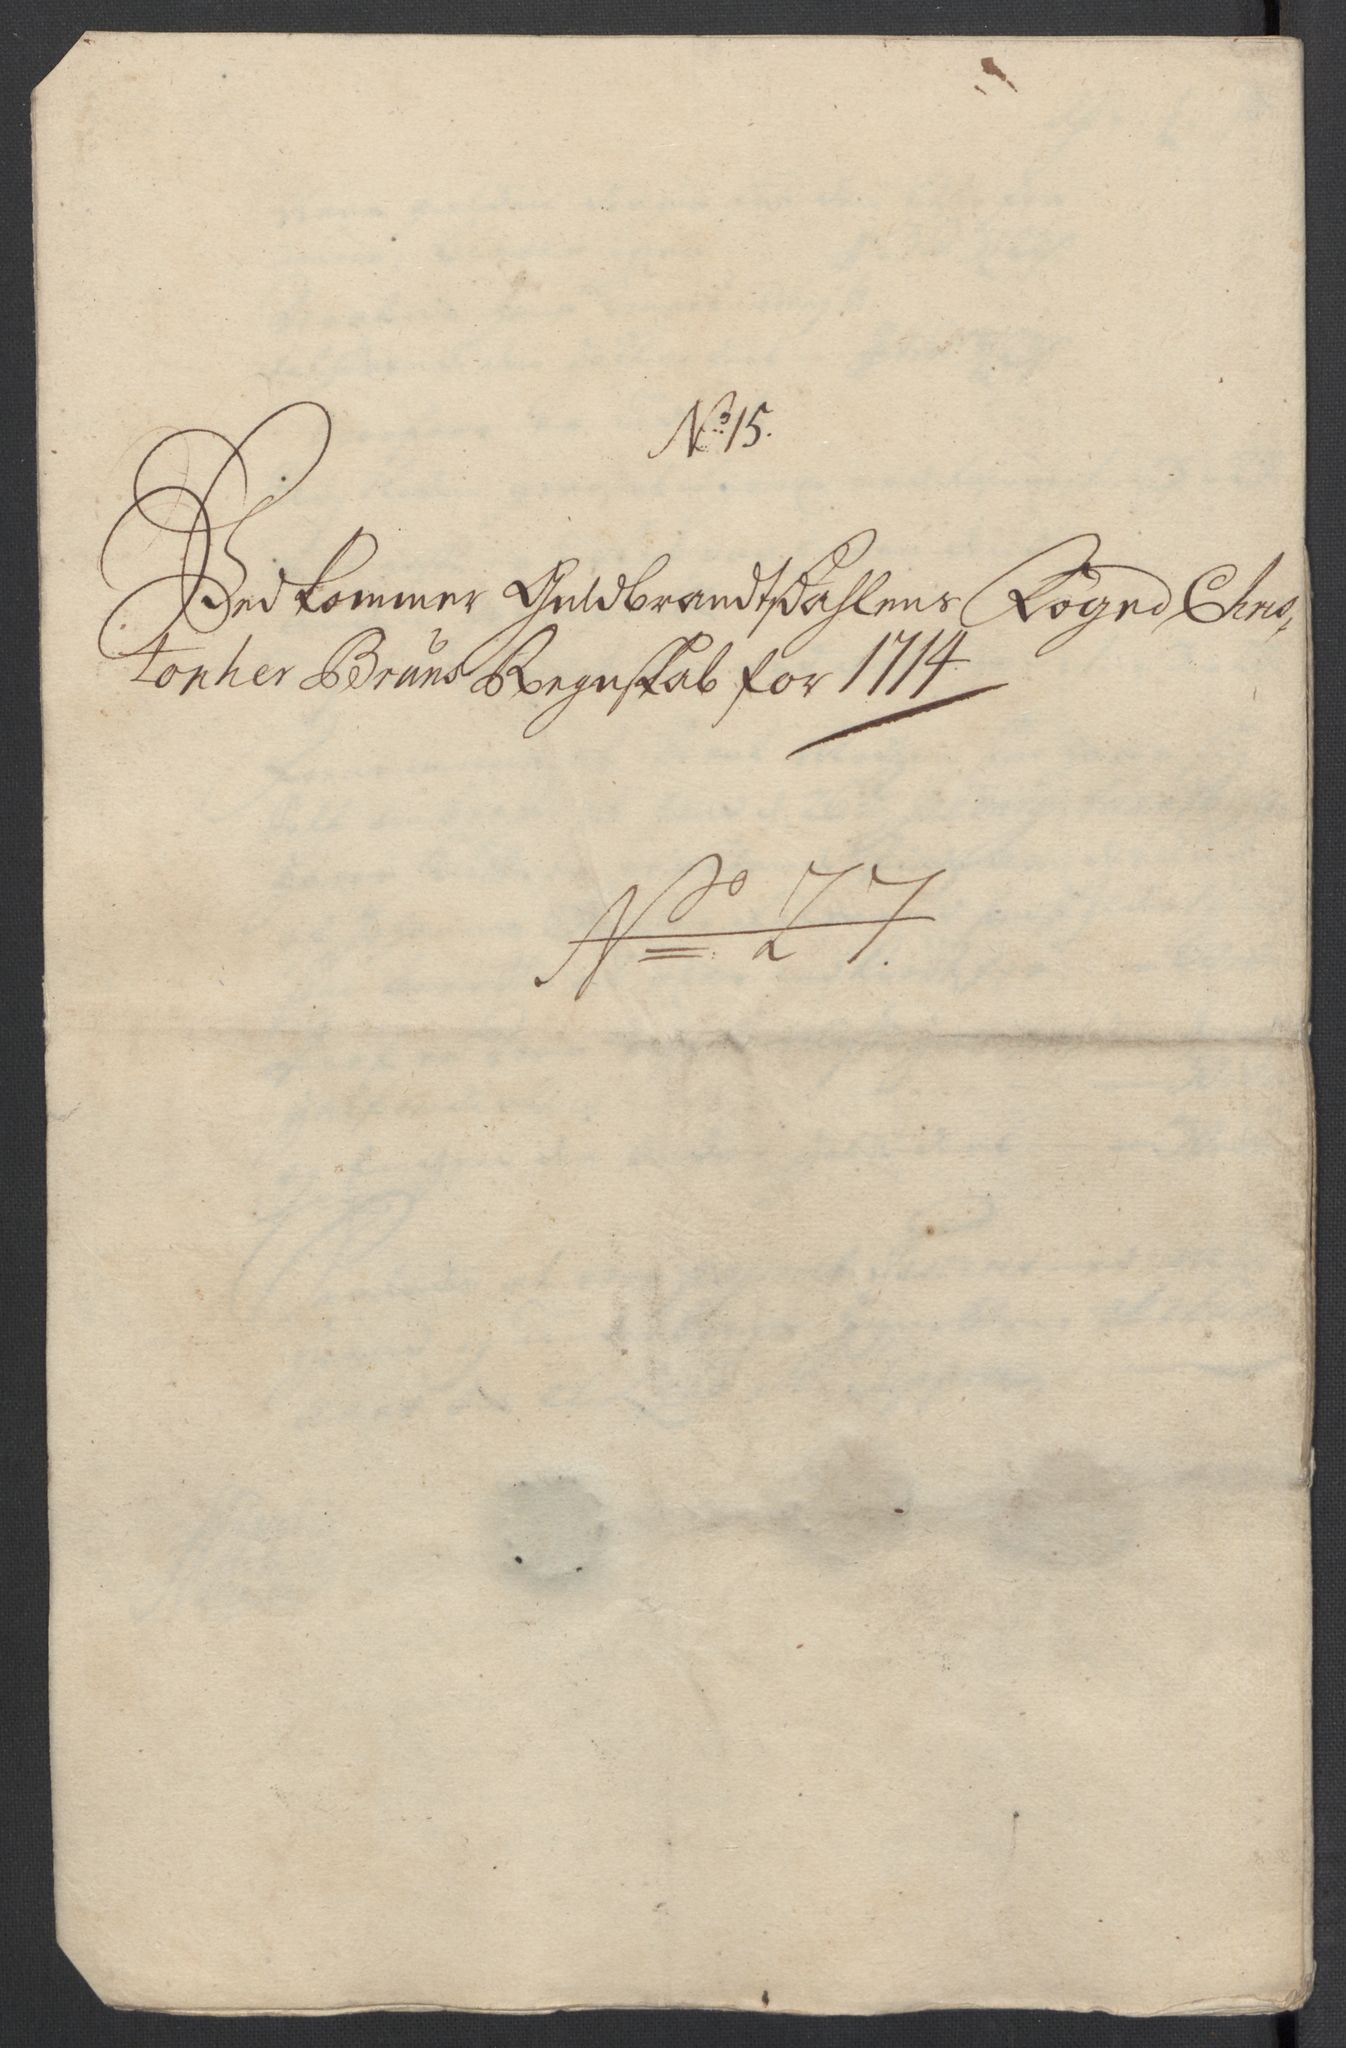 No 15.
Vedkommer Guldbrandtsdahlens Foged Chris,
topher Bruns Regnskab for 1714
No 27.